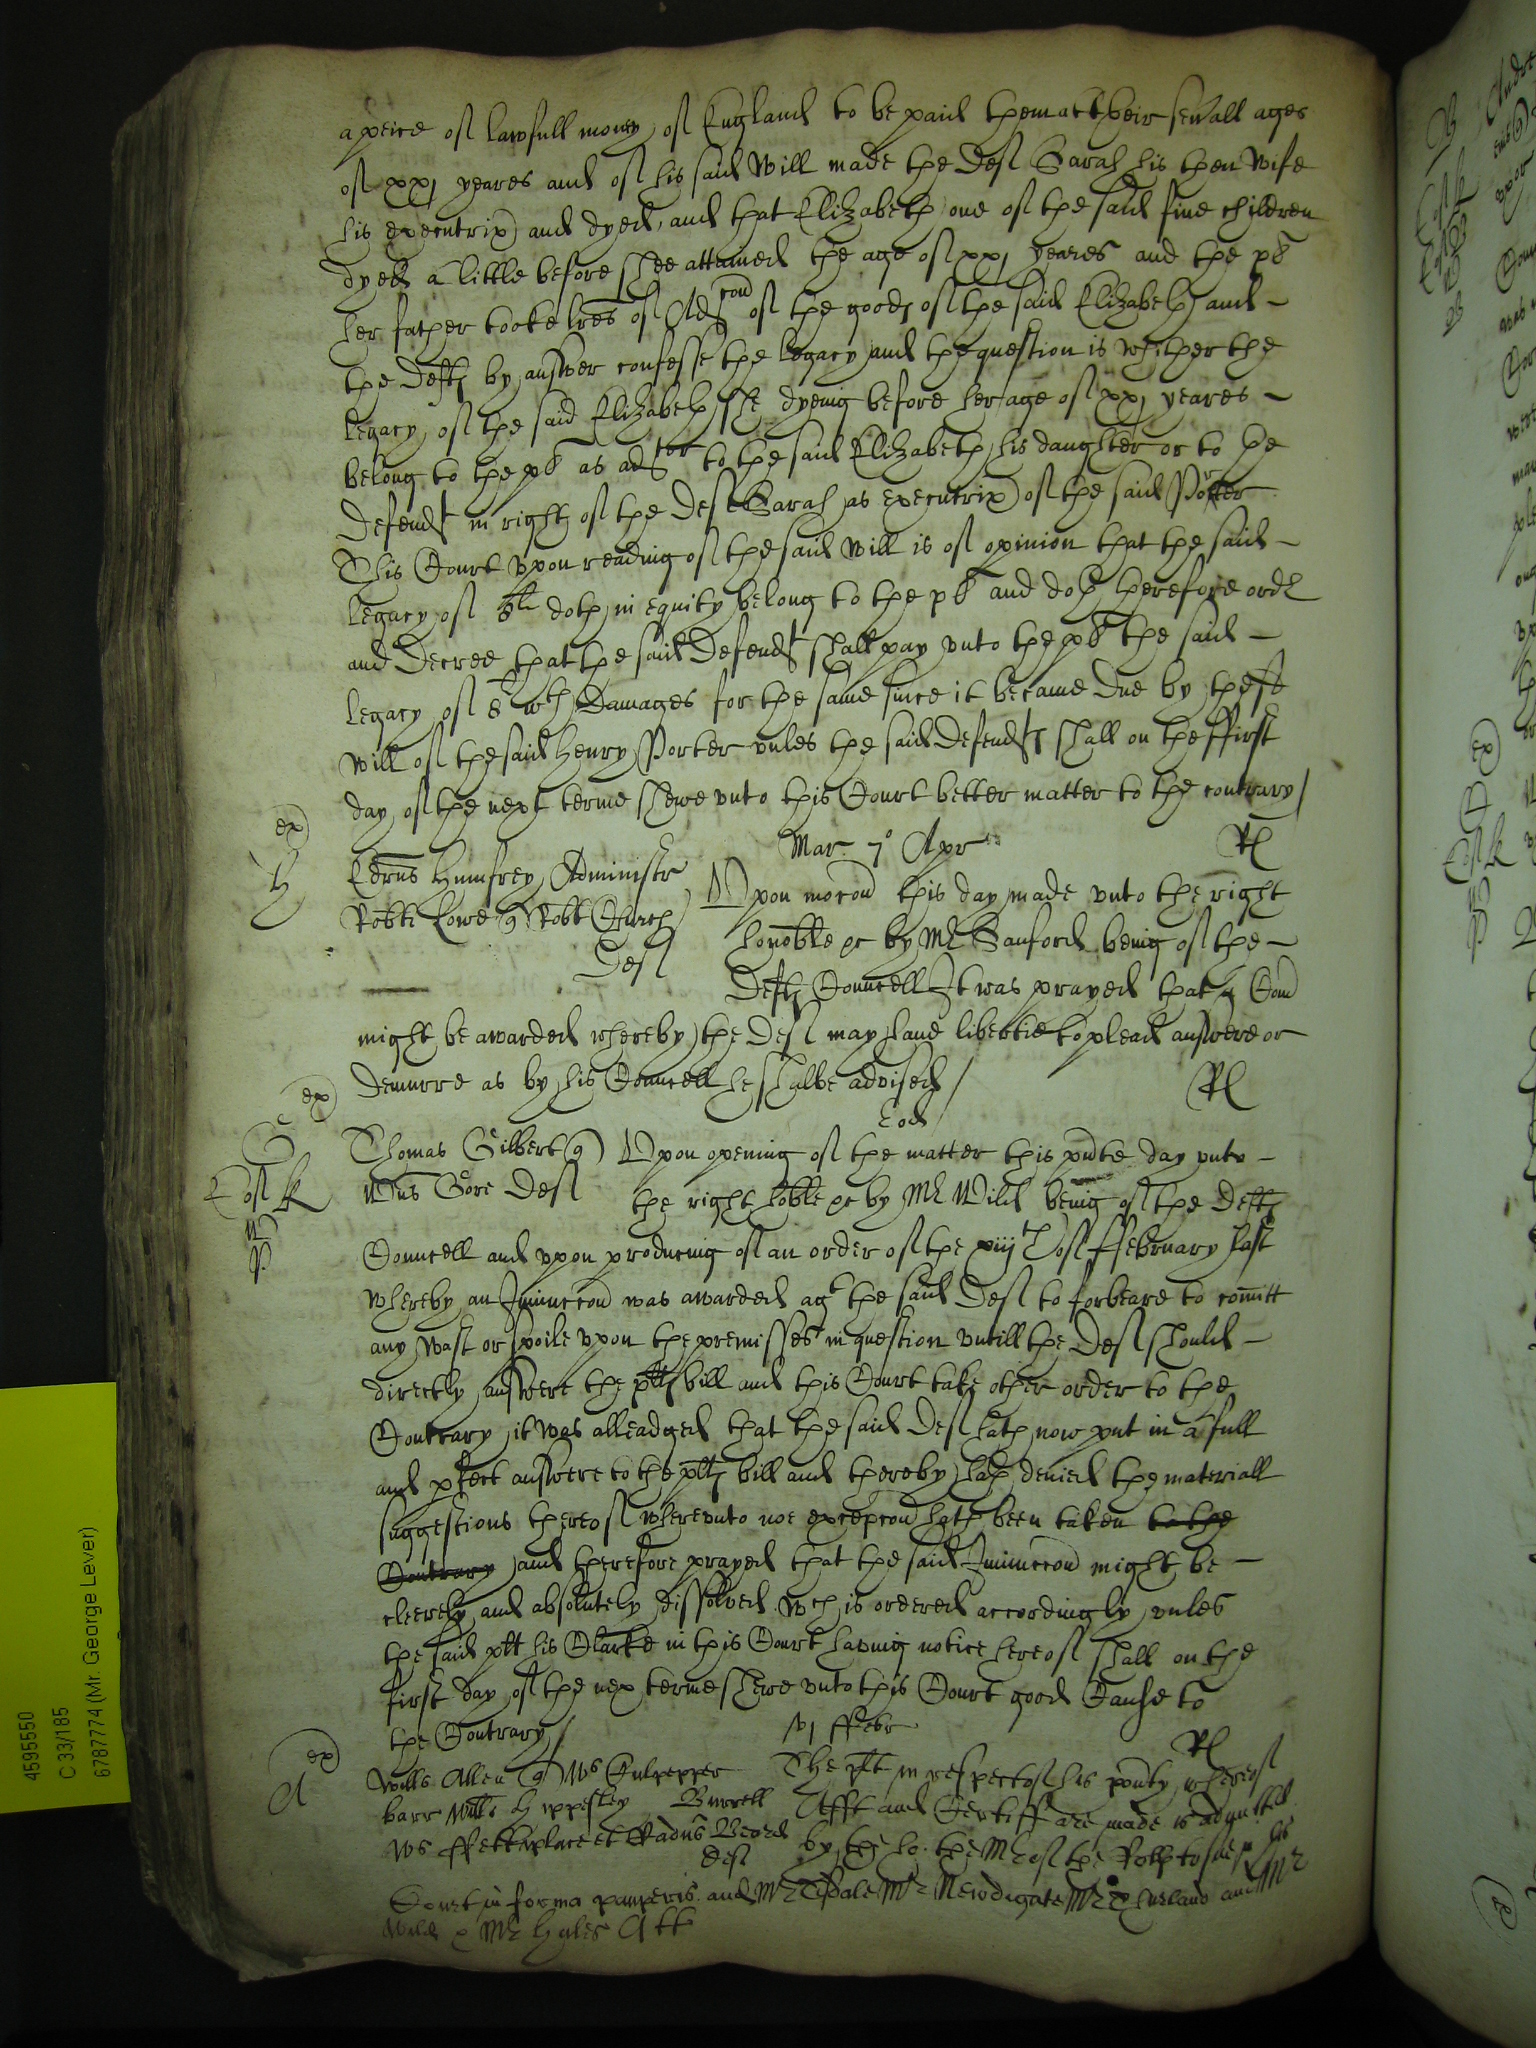 a peice of lawfull money of England to be paid them att their sevall ages
of xxj yeares and of his said Will made the Def Sarah his then Wife
his executrix and dyed, and that Elizabeth one of the said five children
dyed a little before shee attained the age of xxj yeares and the pl
her father tooke lres of Adcon of the goods of the said Elizabeth and
the defts by answer confesse the legacy and the question is whither the
legacy of the said Elizabeth she dyeing before her age of xxj yeares
belong to the pl as adtor to the said Elizabeth his daughter or to he
defendt in right of the Deft Sarah as executrix of the said Porter
This Court upon reading of the said Will is of opinion that the said
legacy of doth in equity belong to the pl and doth therefore ordr
and Decree that the said Defendt shall pay unto the pl the said
legacy of wth Damages for the same since it became due by the
Will of the said Henry Porter unles the said Defendts shall on the ffirst
day of the next terme shewe unto this Court better matter to the contrary
ex
H
Mar 7o Apr
Rl
Edrus Humfrey Administr
Robti Lowe q Robt Church
Def
Upon mocon this day made unto the right
honoble &c by Mr Sanford being of the
Defts Councell It was prayed that a Com
might be awarded whereby the Def may have libertie to plead answere or
demurre as by his Councell he shalbe advised
Rl
ex
G
Eod
Thomas Gilbert q
Wus Gore Def
Upon opening of the matter this pnte day unto
the right hoble &c by Mr Wild being of the Defts
Councell and upon producing of an order of the xiijth of ffebruary last
whereby an Iniunccon was awarded agt the said Def to forbeare to comitt
any wast or spoile upon the premisses in question untill the Def should
directly answere the plts bill and this Court take other order to the
Contrary it was alleadged that the said Def hath now put in a full
and pfect answere to the plts bill and thereby hath denied the materiall
suggestions thereof whereunto noe excepcon hath been taken to the
Contrary and therefore prayed that the said Iniunccon might be
cleerely and absolutely dissolved wch is ordered accordingly unles
the said plt his Clarke in this Court having notice hereof shall on the
first day of the nex terme shewe unto this Court good Cause to
the Contrary
ex
A
vj ffebr
Rl
Wills Allen q Ws Culpepper
barr Wills Hippesley Burrell
Ws ffettiplace et
def
The plt in respect of his povty whereof
Afft and Certiff are made is admitted
by the ho: the Mr of the Rolls to sue in his
Court in forma pauperis and Mr Tisdale Mr Newdigate Mr and Mr
Wild & Mr Hyles Att
4595550
C 33/185
6787774 (Mr. George Lever)